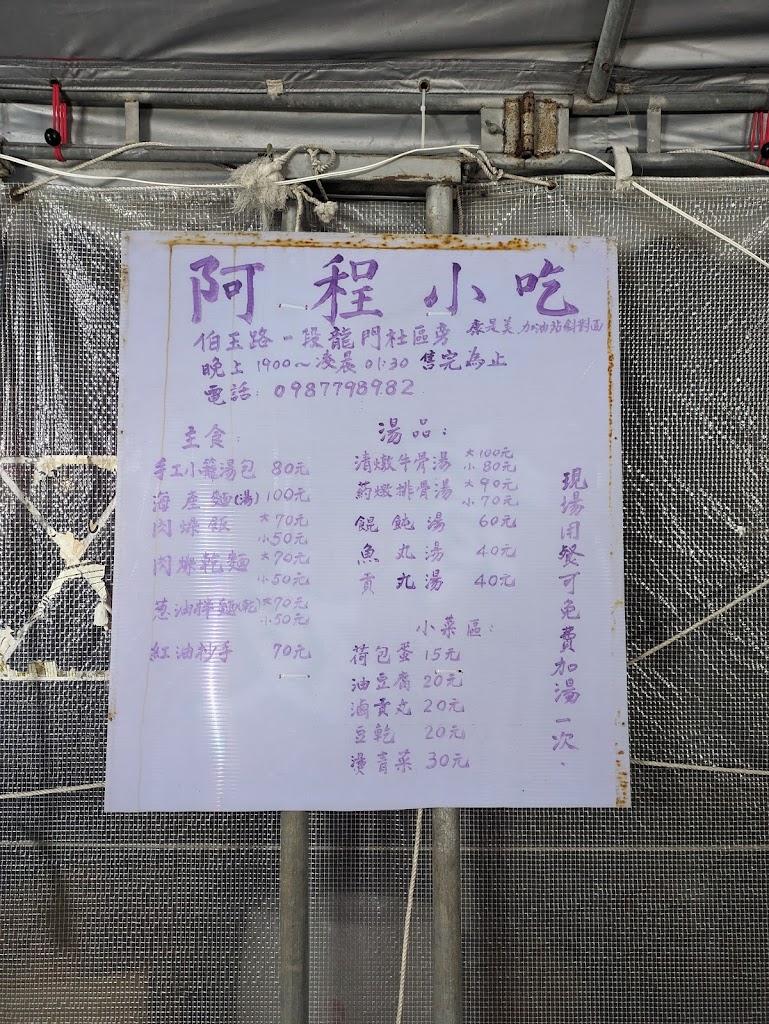 阿程小吃
伯玉路一段龍門社區旁 康是美、加油站斜對面
晚上 1900～凌晨 01:30 售完為止
電話: 0987798982
主食:
手工小籠湯包 80元
海產麵(湯) 100元
肉燥飯 大70元
小50元
肉燥乾麵 大70元
小50元
蔥油拌麵(乾) 大70元
小50元
紅油抄手 70元
湯品:
清燉牛骨湯 大100元
小80元
药燉排骨湯 大90元
小70元
餛飩湯 60元
魚丸湯 40元
貢丸湯 40元
小菜區:
荷包蛋 15元
油豆腐 20元
滷貢丸 20元
豆乾 20元
燙青菜 30元
現場用餐可免費加湯一次.